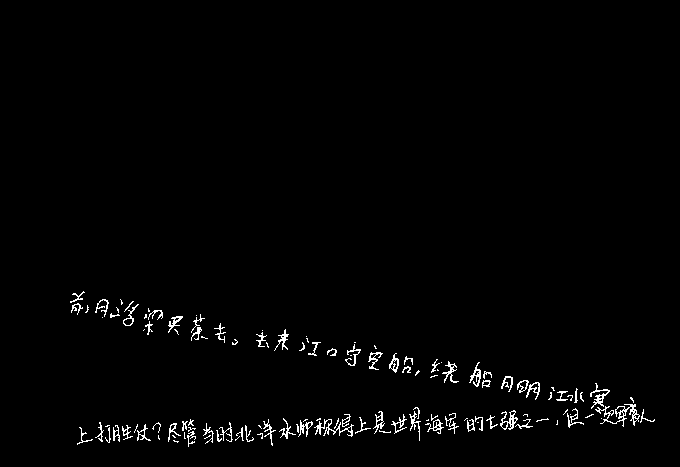 前月浮梁买茶去。去来江口守空船,绕船月明江水寒
上打胜仗?尽管当时北洋水师称得上是世界海军的七强之一,但一支军队